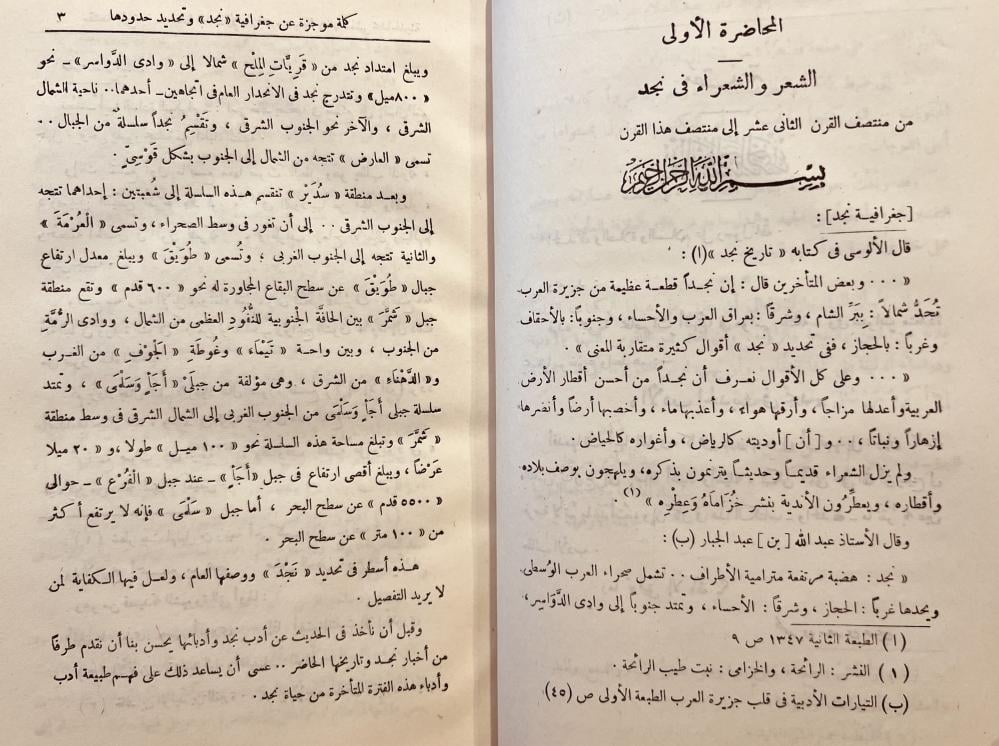 المحاضرة الأولى
الشعر والشعراء فى نجد
من منتصف القرن الثانى عشر إلى منتصف هذا القرن
بسم الله الرحمن الرحيم
[جغرافية نجد] :
قال الألوسى فى كتابه « تاريخ نجد »(١) :
« ... وبعض المتأخرين قال : إن نجداً قطعة عظيمة من جزيرة العرب
تُحَدُّ شمالاً : بِبَرِّ الشام ، وشرقاً : بعراق العرب والأحساء ، وجنوباً : بالأحقاف
وغرباً : بالحجاز ، ففى تحديد « نجد » أقوال كثيرة متقاربة المعنى » .
« ... وعلى كل الأقوال نعرف أن نجداً من أحسن أقطار الأرض
العربية وأعدلها مزاجاً ، وأرقها هواء ، وأعذبها ماء ، وأخصبها أرضاً وأنضرها
إزهاراً ونباتاً ، .. و [ أن ] أوديته كالرياض ، وأغواره كالحياض .
ولم يزل الشعراء قديماً وحديثاً يترنمون بذكره ، ويلهجون بوصف بلاده
وأقطاره ، ويعطِّرُون الأندية بنشر خُزَامَاهُ وَعِطرِه » (١) .
وقال الأستاذ عبد الله [ بن ] عبد الجبار (ب) :
« نجد : هضبة مرتفعة مترامية الأطراف .. تشمل صحراء العرب الوُسطى
ويحدها غرباً : الحجاز ، وشرقاً : الأحساء ، وتمتد جنوباً إلى وادِى الدَّوَاسِر ،
(١) الطبعة الثانية ١٣٤٧ ص ٩
(١) النشر : الرائحة ، والخزامى : نبت طيب الرائحة .
(ب) التيارات الأدبية فى قلب جزيرة العرب الطبعة الأولى ص (٤٥)
كلمة موجزة عن جغرافية «نجد» وتحديد حدودها ٣
ويبلغ امتداد نجد من « قَريَّاتِ المِلْح » شمالا إلى « وادى الدَّواسر » ـ نحو
« ٨٠٠ميل» وتتدرج نجد فى الانحدار العام فى اتجاهين ـ أحدهما.. ناحية الشمال
الشرقى ، والآخر نحو الجنوب الشرقى ، وتَقْسِمُ نجداً سلسلةٌ من الجبال ..
تسمى « العارض » تتجه من الشمال إلى الجنوب بشكل قَوْسِىّ .
وبعد منطقة « سُدَيْر » تنقسم هذه السلسلة إلى شُعبتين : إحداهما تتجه
إلى الجنوب الشرقى .. إلى أن تغور فى وسط الصحراء ، وتسمى « الْعُرْمَةَ »
والثانية تتجه إلى الجنوب الغربى ؛ وتُسمى « طُوَيْقَ » ويبلغ معدل ارتفاع
جبال « طُوَيْقَ » عن سطح البقاع المجاورة له نحو « ٦٠٠ قدم » وتقع منطقة
جبل « شَمَّرَ » بين الحافَّة الجنوبية للنُّفُودِ العظمى من الشمال ، ووادى الرُّمَّةِ
من الجنوب ، وبين واحة « تَيْمَاء » وغُوطَةِ « الجَوْفِ » من الغرب
و« الدَّهْنَاءِ » من الشرق ، وهى مؤلفة من جبلَىْ « أَجَأٍ وَسَلْمَى » ، وتمتد
سلسلة جبلى أَجَأٍ وَسَلْمَى من الجنوب الغربى إلى الشمال الشرقى فى وسط منطقة
« شَمَّرَ » وتبلغ مساحة هذه السلسلة نحو « ١٠٠ ميل » طولا ،و« ٢٠ ميلا
عَرْضاً » ، ويبلغ أقصى ارتفاع فى جبل « أَجَأٍ » ـ عند جبل « الْفَرْعِ » ـ حوالى
« ٥٥٠٠ قدم » عن سطح البحر ، أما جبل « سَلْمَى » فإنه لا يرتفع أكثر
من « ١٠٠ متر » عن سطح البحر .
هذه أسطر فى تحديد « نَجْدَ » ووصفها العام ، ولعل فيها الكفاية لمن
لا يريد التفصيل .
وقبل أن نأخذ فى الحديث عن أدب نجد وأدبائها يحسن بنا أن نقدم طرفا
من أخبار نجد وتاريخها الحاضر .. عسى أن يساعد ذلك على فهم طبيعة أدب
وأدباء هذه الفترة المتأخرة من حياة نجد .